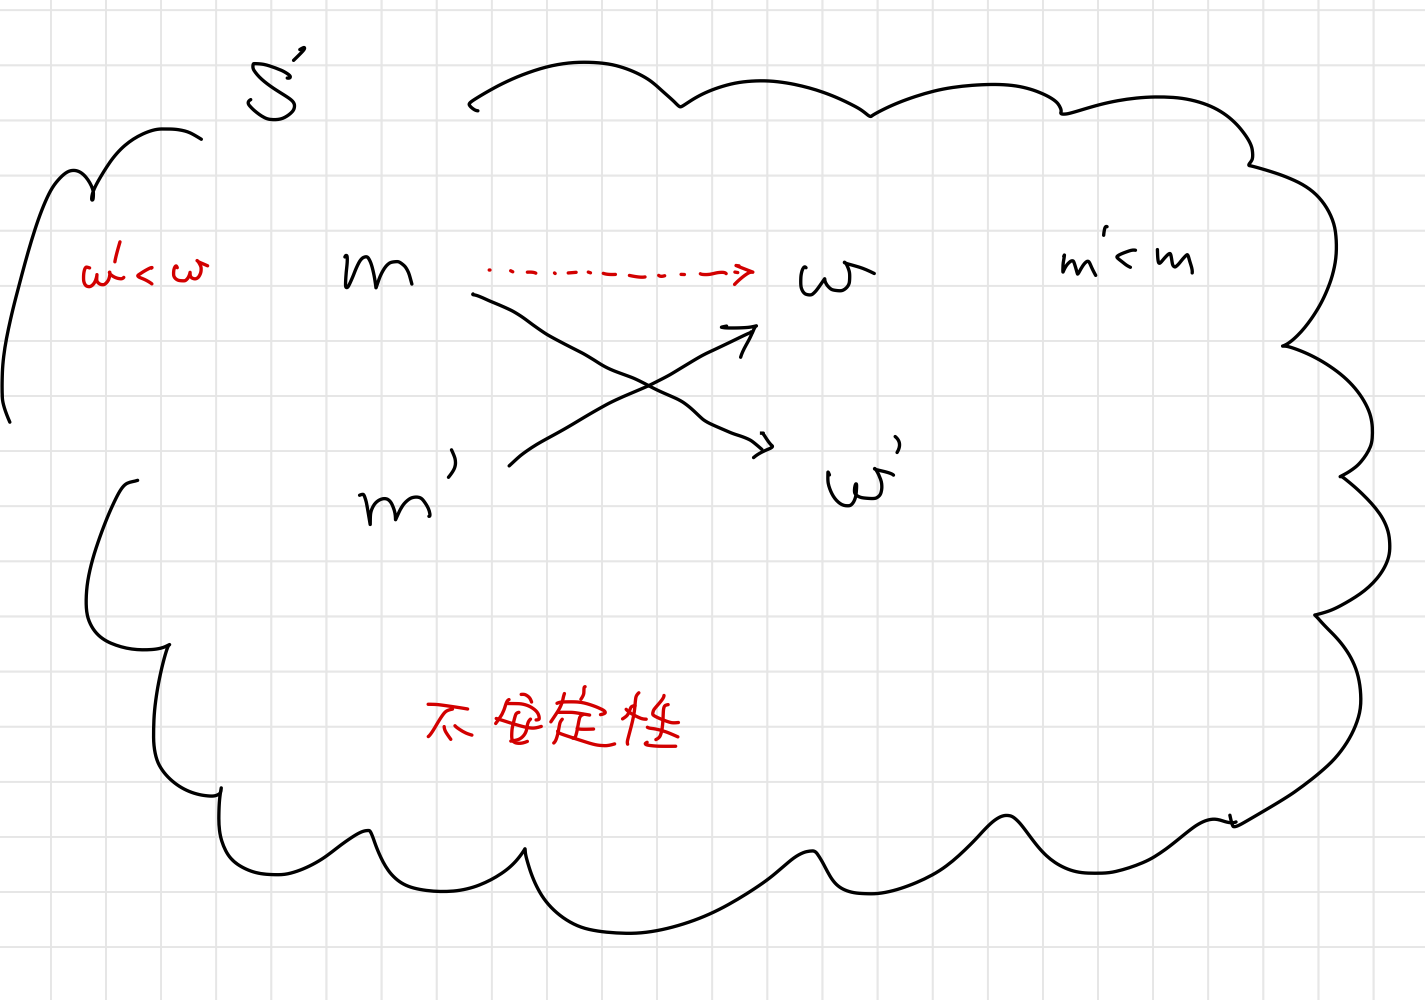 S'
w' < w m w m' < m
m' w'
不安定性